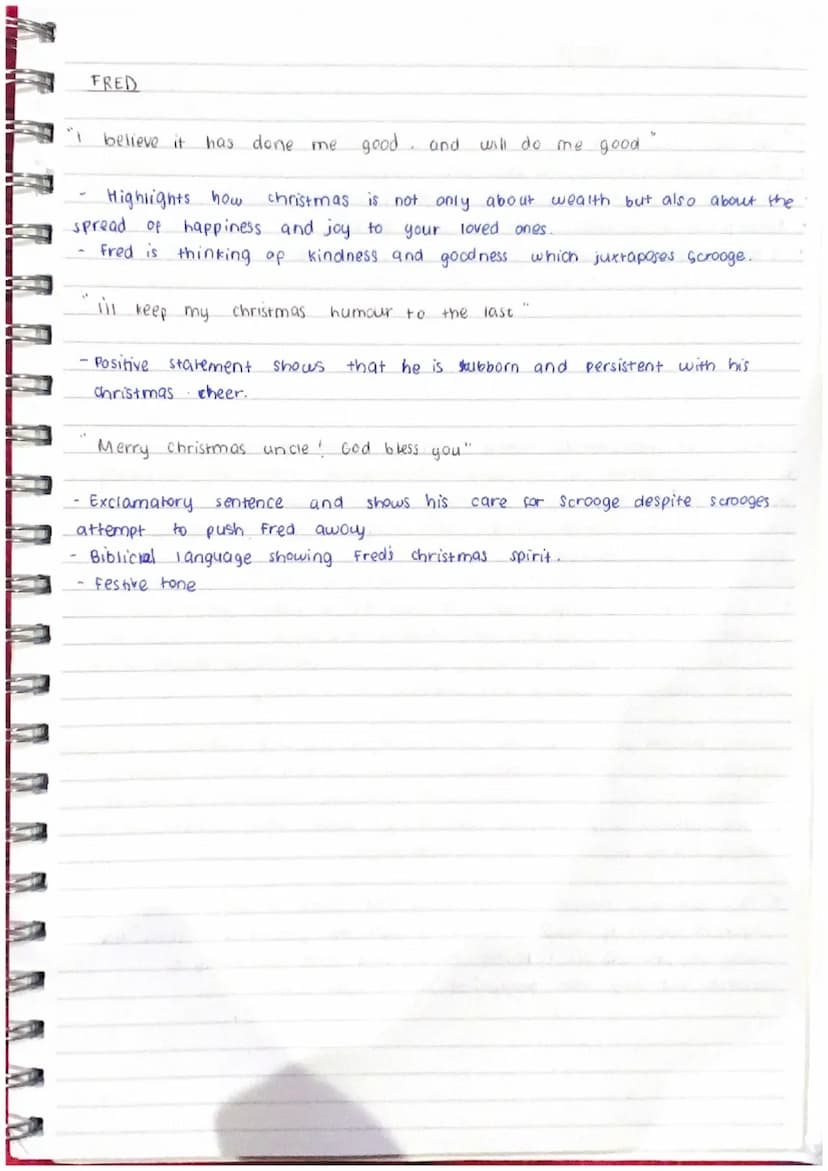 FRED
"I believe it has done me good . and will do me good"
- Highlights how christmas is not only about wealth but also about the
spread of happiness and joy to your loved ones.
- Fred is thinking of kindness and goodness which juxtaposes Scrooge.
"i'll keep my christmas humour to the last"
- Positive statement shows that he is stubborn and persistent with his
christmas cheer.
"Merry christmas uncle! God bless you"
- Exclamatory sentence and shows his care for Scrooge despite scrooges
attempt to push Fred away
- Biblicial language showing Fred's christmas spirit.
- Festive tone